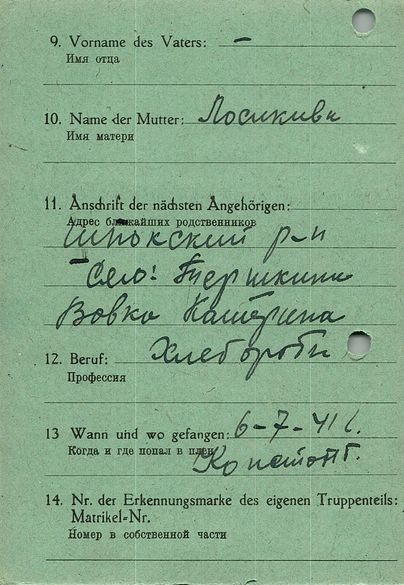 9. Vorname des Vaters: —
Имя отца
10. Name der Mutter:
Имя матери
11. Anschrift der nächsten Angehörigen:
Адрес ближайших родственников
р-н
Село:
Вовко Катерина
12. Beruf: Хлебороб
Профессия
13 Wann und wo gefangen: 6-7-41 г.
Когда и где попал в плен
14. Nr. der Erkennungsmarke des eigenen Truppenteils:
Matrikel=Nr.
Номер в собственной части